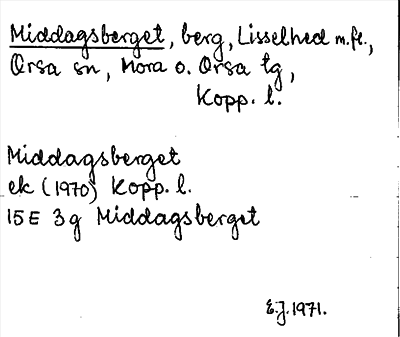 Middagsberget, berg, Lisselhed m.fl.,
Orsa sn, Mora o. Orsa tg,
Kopp. l.
Middagsberget
ek (1970) Kopp. l.
15E 3g Middagsberget
E.J. 1971.